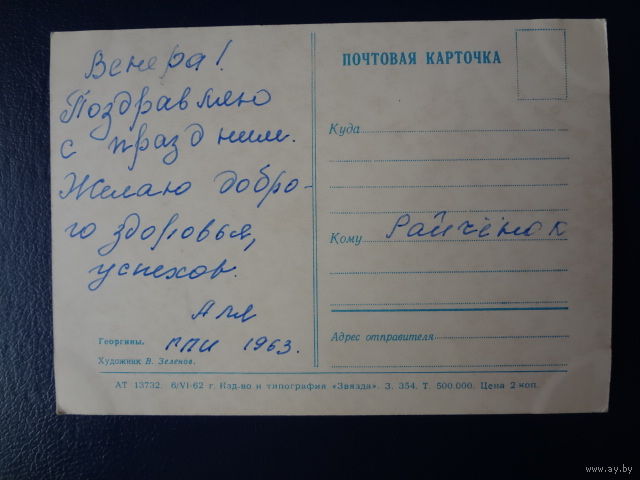 Венера!
Поздравляю
с праздником.
Желаю добро-
го здоровья,
успехов.
Аля
ГПИ 1963.
Георгины.
Художник В. Зеленов.
ПОЧТОВАЯ КАРТОЧКА
Куда
Кому Райчёнок
Адрес отправителя
АТ 13732. 6/VI-62 г. Изд-во и типография «Звязда». З. 354. Т. 500.000. Цена 2 коп.
www.ay.by